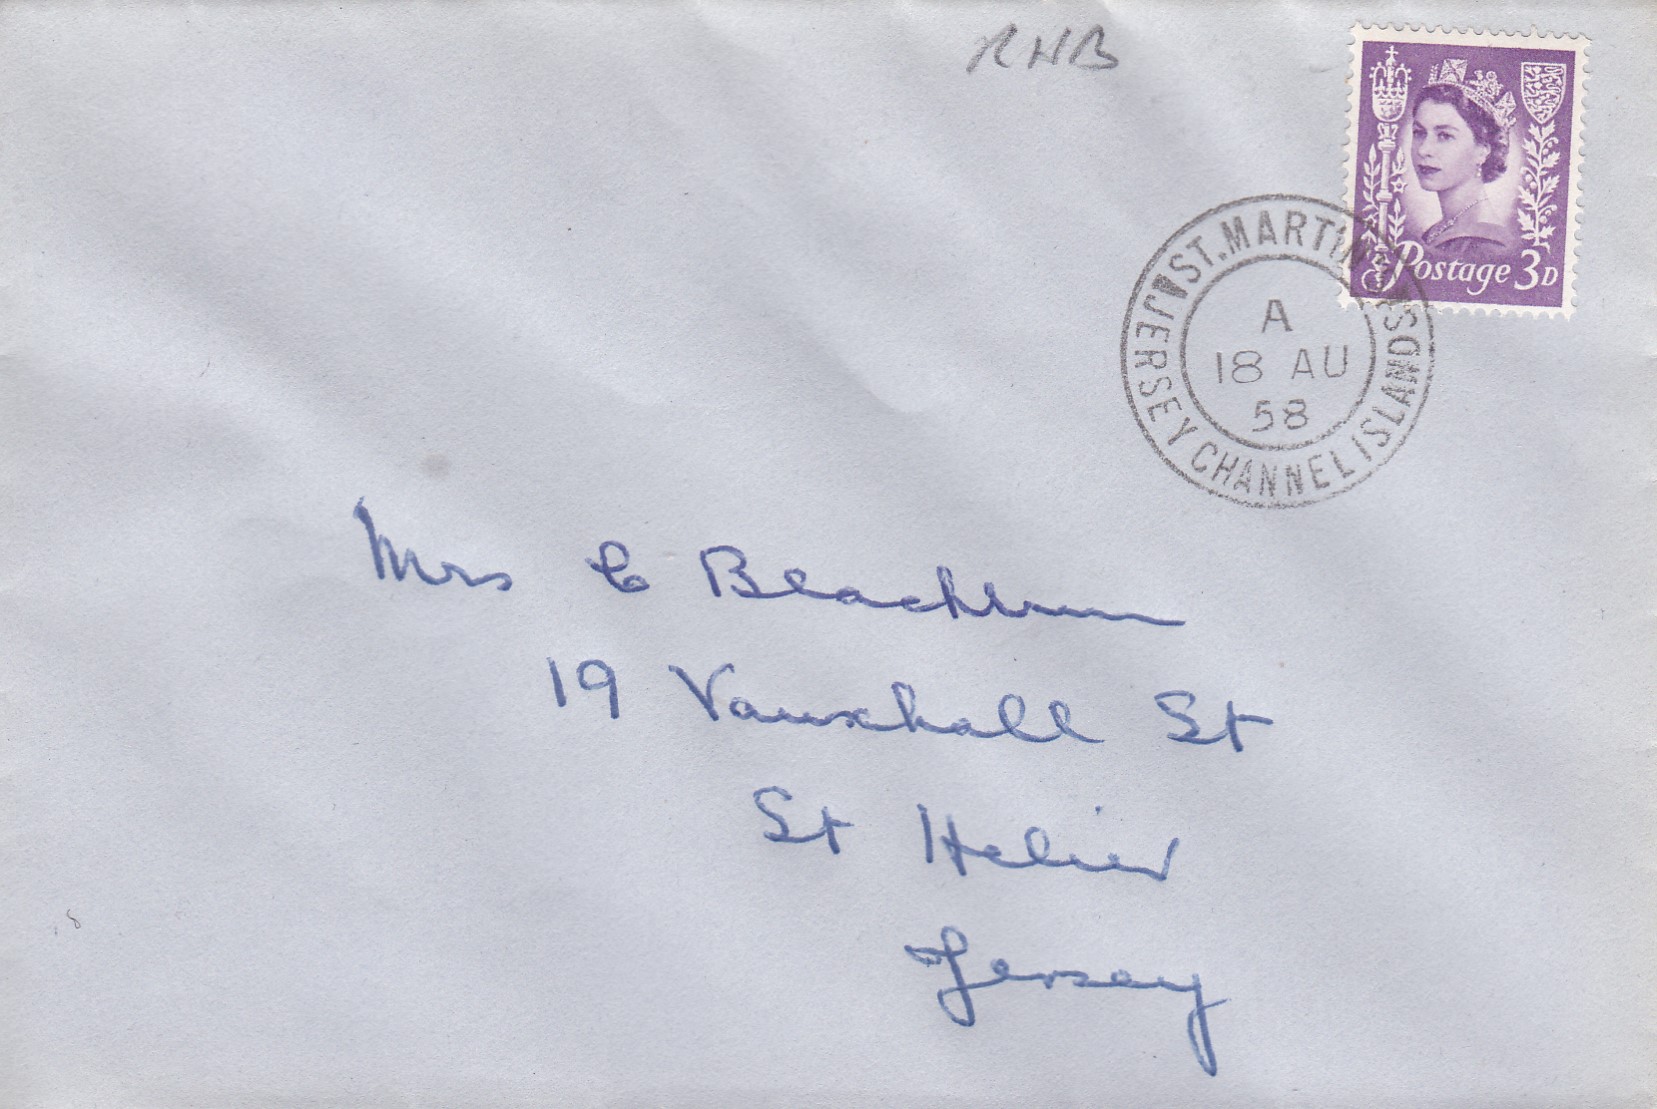 RHB
Postage 3D
ST. MARTINS
JERSEY CHANNEL ISLANDS
A
18 AU
58
Mrs C Blackburn
19 Vauxhall St
St Helier
Jersey